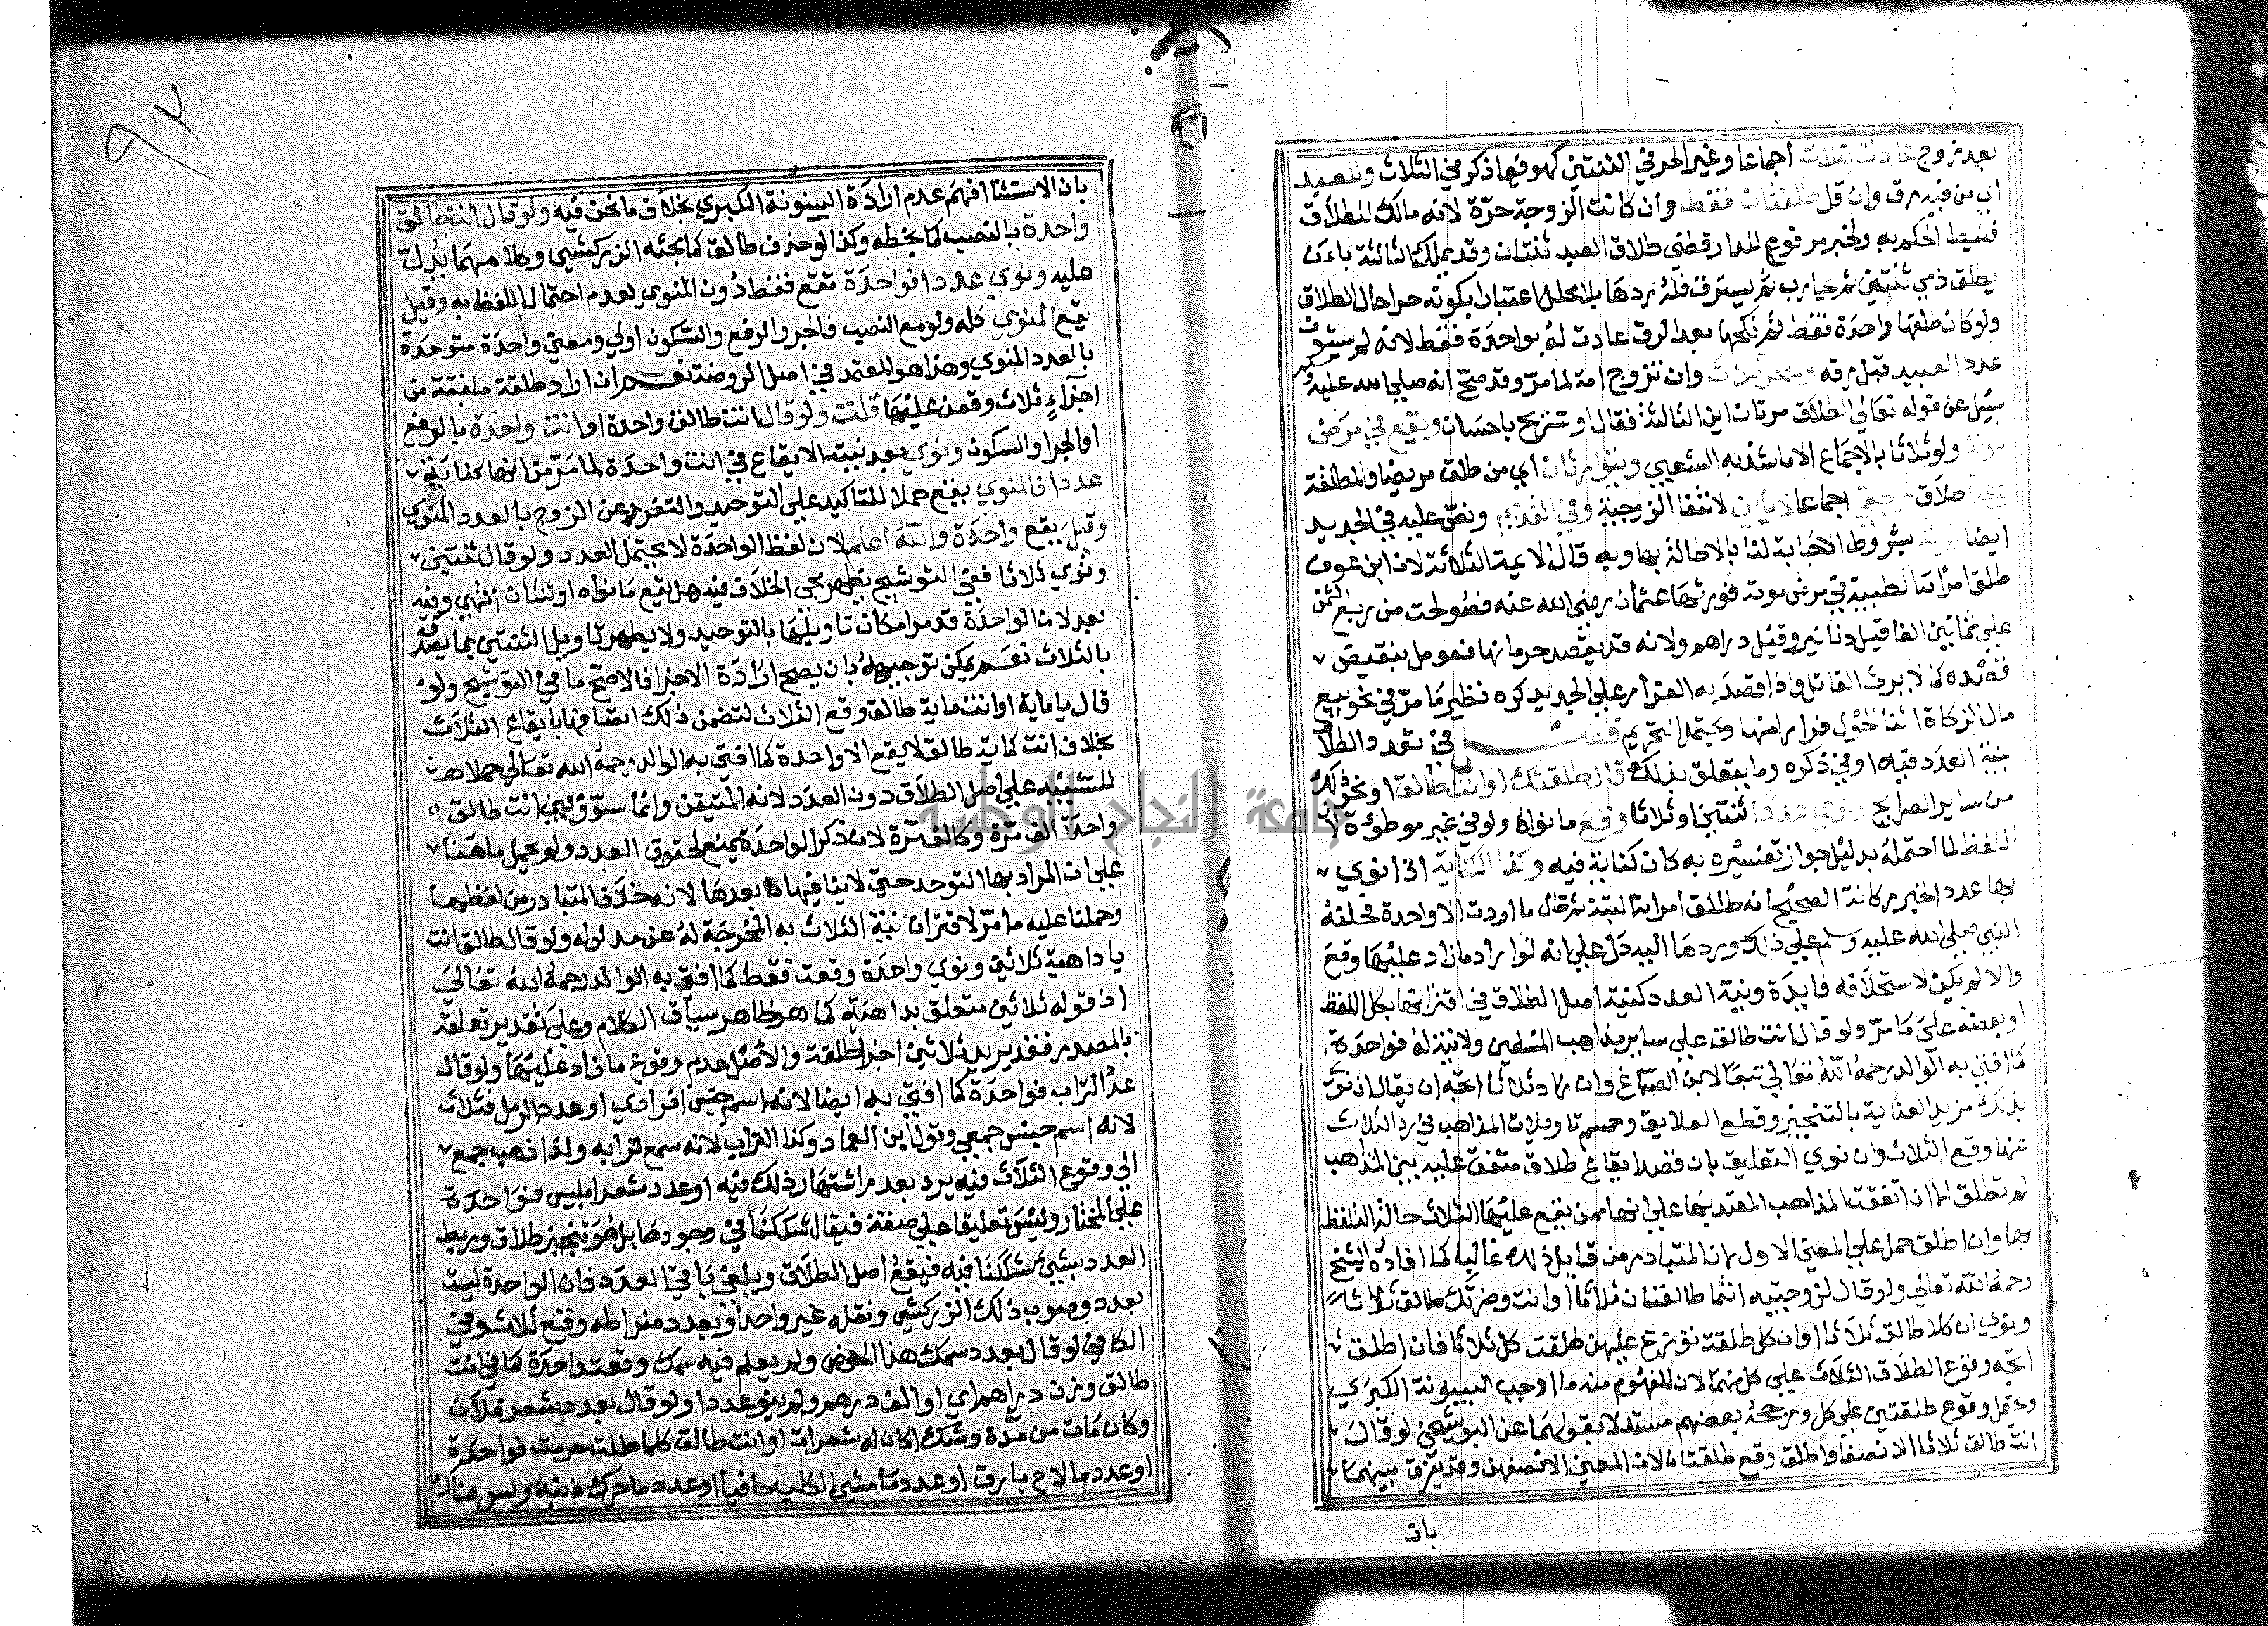 بعد زوج عادت بثلاث اجماعا وغير الحر في الثنتين كهو فيما ذكر في الثلاث وللعبد
اي من فيه رق وان قل طلقتان فقط وان كانت الزوجة حرة لانه مالك للطلاق
فنيط الحكم به ولخبر مرفوع للدارقطني طلاق العبد ثنتان وقد يملك الثالثة بان
يطلق ذمي ثنتين ثم يحارب ثم يسترق فله ردها بلا محلل اعتبارا بكونه حرا حال الطلاق
ولو كان طلقها واحدة فقط ثم نكحها بعد الرق عادت له بواحدة فقط لانه لم يستوف
عدد العبيد قبل رقه وللحر ثلاث وان تزوج امة لما مر وقد صح انه صلى الله عليه وسلم
سيل عن قوله تعالى الطلاق مرتان اين الثالثة فقال او تسريح باحسان ويقع في مرض
موته ولو ثلاثا بالاجماع الا ما شذ به الشعبي ويتوارثان اي من طلق مريضا والمطلقة
في عدة طلاق رجعي اجماعا لا باين لانتفا الزوجية وفي القديم ونص عليه في الجديد
ايضا ترثه بشروط الاجابة لنا بالاطالة بها وبه قال الايمة الثلاثة لان ابن عوف
طلق امراته الكلبية في مرض موته فورثها عثمان رضي الله عنه فصولحت من ربع الثمن
على ثمانين الفا قيل دنانير وقيل دراهم ولانه قد يقصد حرمانها فعومل بنقيض
قصده كما لا يرث القاتل واذا قصد به الفرار على الجديد كره نظير ما مر في نحو بيع
مال الزكاة اثنا الحول فرارا منها ويحتمل التحريم فصل في تعدد الطلاق
بنية العدد فيه او في ذكره وما يتعلق بذلك قال طلقتك او انت طالق او نحو ذلك
من ساير الصرايح ونوى عددا ثنتين او ثلاثا وقع ما نواه ولو في غير موطؤة لان
اللفظ لما احتمله بدليل جواز تفسيره به كان كناية فيه وكذا الكناية اذا نوى
بها عدد الخبر ركانة الصحيح انه طلق امراته البتة ثم قال ما اردت الا واحدة فحلفه
النبي صلى الله عليه وسلم على ذلك وردها اليه دل على انه لو اراد ما زاد عليها وقع
والا لم يكن لاستحلافه فايدة ونية العدد كنية اصل الطلاق في اقترانها بكل اللفظ
او بعضه على ما مر ولو قال انت طالق على ساير مذاهب المسلمين ولا نية له فواحدة
كما افتى به الوالد رحمه الله تعالى تبعا لابن الصباغ وان اراد ثلاثا اتجه ان يقال ان نوى
بذلك مزيد العناية بالتنجيز وقطع العلايق وحسم تاويلات المذاهب في رد الثلاث
عنها وقع الثلاث وان نوى التعليق بان قصد ايقاع طلاق متفق عليه بين المذاهب
لم تطلق الا ان اتفقت المذاهب المعتد بها على انها ممن تقع عليها الثلاث حالة التلفظ
بها وان اطلق حمل على المعنى الاول لانه المتبادر من قايل ذلك غالبا كما افاده الشيخ
رحمه الله تعالى ولو قال لزوجتيه انتما طالقتان ثلاثا او انت وضرتك طالق ثلاثا
ونوى ان كلا طالق ثلاثا او ان كل طلقة توزع عليهن طلقت كل ثلاثا فان اطلق
اتجه وقوع الطلاق الثلاث على كل منهما لان المفهوم منه ما اوجب البينونة الكبرى
ويحتمل وقوع طلقتين على كل ورجحه بعضهم مستدلا بقولهما عن البوشنجي لو قال
انت طالق ثلاثا الا نصفا واطلق وقع طلقتا لان المعنى الا نصفهن وقد يفرق بينهما
بان
بان الاستثنا افهم عدم ارادة البينونة الكبرى بخلاف ما نحن فيه ولو قال انت طالق
واحدة بالنصب كما بخطه وكذا لو حذف طالق كما بحثه الزركشي وكلامهما يدل
عليه ونوى عددا فواحدة تقع فقط دون المنوى لعدم احتمال اللفظ به وقيل
يقع المنوى كله ولو مع النصب فالجر والرفع والسكون اولى ومعنى واحدة متوحدة
بالعدد المنوى وهذا هو المعتمد في اصل الروضة نعم ان اراد طلقة ملفقة من
اجزاء ثلاث وقعن عليها قلت ولو قال انت طالق واحدة او انت واحدة بالرفع
او الجر او السكون ونوى بعد نية الايقاع في انت واحدة لما مر من انها كناية
عددا فالمنوى يقع حملا للتاكيد على التوحيد والتفرد عن الزوج بالعدد المنوى
وقيل يقع واحدة والله اعلم لان لفظ الواحدة لا يحتمل العدد ولو قال ثنتين
ونوى ثلاثا ففي التوشيح يظهر مجي الخلاف فيه هل يقع ما نواه او ثنتان انتهى وفيه
بعد لان الواحدة قد مر امكان تاويلها بالتوحيد ولا يظهر تاويل الثنتين بما يصدق
بالثلاث نعم يمكن توجيهه بان يصح ارادة الاجزا فالاصح ما في التوشيح ولو
قال يا ماية او انت ماية طالق وقع الثلاث لتضمن ذلك اتصافها بايقاع الثلاث
بخلاف انت كماية طالق لا يقع الا واحدة كما افتى به الوالد رحمه الله تعالى حملا
للتشبيه على اصل الطلاق دون العدد لانه المتيقن وانما سوى بين انت طالق
واحدة الف مرة وكالف مرة لان ذكر الواحدة يمنع لحوق العدد ولو حمل ما هنا
على ان المراد بها التوحد حتى لا ينافيها ما بعدها لانه خلاف المتبادر من لفظها
وحملنا عليه ما مر لاقتران نية الثلاث به المخرجة له عن مدلوله ولو قال طالق انت
يا داهية ثلاثين ونوى واحدة وقعت فقط كما افتى به الوالد رحمه الله تعالى
اذ قوله ثلاثين متعلق بداهية كما هو ظاهر سياق الكلام وعلى تقدير تعلقه
بالمصدر فقد يريد ثلاثين اجزا طلقة والاصل عدم وقوع ما زاد عليها ولو قال
عد التراب فواحدة كما افتى به ايضا لانه اسم جنس افرادي او عدد الرمل فثلاث
لانه اسم جنس جمعي وقول ابن العماد وكذا التراب لانه سمع ترابه ولذا ذهب جمع
الى وقوع الثلاث فيه يرد بعدم اشتهار ذلك فيه او عدد شعر ابليس فواحدة
على المختار وليس تعليقا على صفة فيقال شككنا في وجودها بل هو تنجيز طلاق وربط
العدد بشيئ شككنا فيه فيقع اصل الطلاق ويلغى باقي العدد فان الواحدة ليست
بعدد وصوب ذلك الزركشي ونقله غير واحد او بعدد ضراطه وقع ثلاث وفي
الكافي لو قال بعدد سمك هذا الحوض ولم يعلم فيه سمك وقعت واحدة كما في انت
طالق وزن دراهم اي او الف درهم ولم ينو عددا ولو قال بعدد شعر فلان
وكان مات من مدة وشك اكان له شعرات او انت طالق كلما حللت حرمت فواحدة
او عدد ما لاح بارق او عدد ما مشى الكلب حافيا او عدد ما حرك ذنبه وليس هناك
جامعة النجاح الوطنية